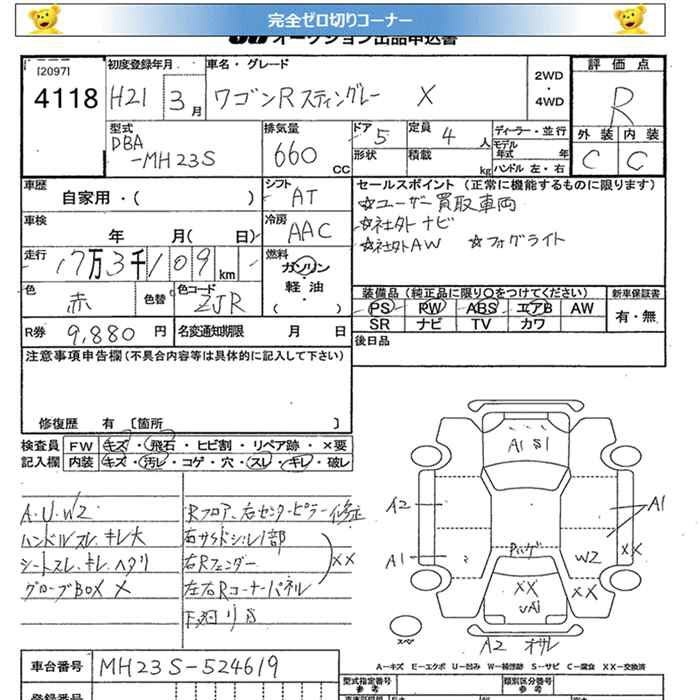 完全ゼロ切りコーナー
オークション出品申込書
[2097]
4118
初度登録年月 H21 3月
車名・グレード ワゴンRスティングレー X
2WD・4WD
評価点 R
外装 C 内装 C
型式 DBA-MH23S
排気量 660 CC
ドア 5 形状
定員 4 人 積載 kg
ディーラー・並行
モデル年式 年
ハンドル 左・右
車歴 自家用・( )
シフト AT
セールスポイント (正常に機能するものに限ります)
☆ユーザー買取車両
☆社外ナビ
☆社外AW ☆フォグライト
車検 年 月( 日)
冷房 AAC
走行 17万3千109 km
燃料 ガソリン 軽油 ( )
色 赤 色替
色コード ZJR
装備品 (純正品に限り○をつけてください)
PS PW ABS エアB AW
SR ナビ TV カワ
新車保証書 有・無
R券 9,880 円
名変通知期限 月 日
後日品
注意事項申告欄(不具合内容等は具体的に記入して下さい)
修復歴 有 [箇所 ]
検査員記入欄
FW キズ・飛石・ヒビ割・リペア跡・×要
内装 キズ・汚レ・コゲ・穴・スレ・キレ・破レ
A・U・W2
ハンドルスレ、キレ大
シートスレ、キレ、ヘタリ
グローブBOX X
Rフロア、右センターピラー修正
右サイドシル1部
右Rフェンダー
左右Rコーナーパネル
XX
下回りS
A1 S1
A2
A1
A1
XX
Pハゲ
W2
XX
XX
UA1
スペア
A2 オサレ
A−キズ E−エクボ U−凹み W−補修跡 S−サビ C−腐食 XX−交換済
車台番号 MH23S-524619
登録番号
型式指定番号 参考
類別区分番号 参考